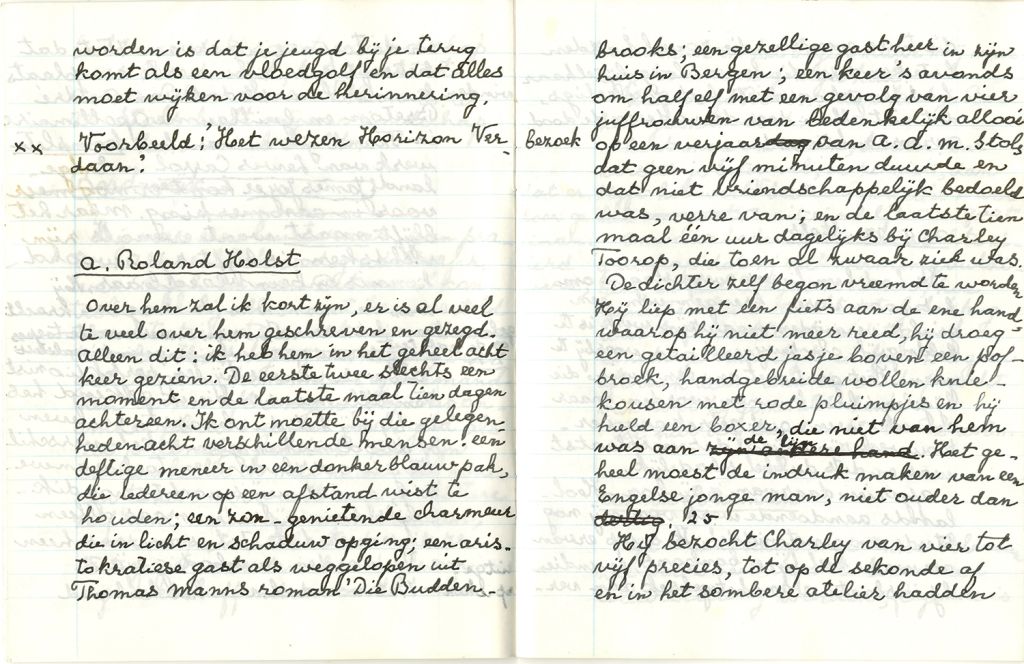 worden is dat je jeugd bij je terug
komt als een bloedgolf en dat alles
moet wijken voor de herinnering.
xx Voorbeeld: 'Het wezen Horizon Ver-
daan.'
A. Roland Holst
Over hem zal ik kort zijn, er is al veel
te veel over hem geschreven en gezegd.
Alleen dit: ik heb hem in het geheel acht
keer gezien. De eerste twee slechts een
moment en de laatste maal tien dagen
achtereen. Ik ontmoette bij die gelegen-
heden acht verschillende mensen: een
deftige meneer in een donkerblauw pak,
die iedereen op een afstand wist te
houden; een zon-genietende charmeur
die in licht en schaduw opging; een aris-
tokratiese gast als weggelopen uit
Thomas Manns roman 'Die Budden-
brooks; een gezellige gastheer in zijn
huis in Bergen; een keer 's avonds
om half elf met een gevolg van vier
juffrouwen van bedenkelijk allooi
Bezoek op een verjaardag van A.A.M. Stols
dat geen vijf minuten duurde en
dat niet vriendschappelijk bedoeld
was, verre van; en de laatste tien
maal één uur dagelijks bij Charley
Toorop, die toen al zwaar ziek was.
De dichter zelf begon vreemd te worden
Hij liep met een fiets aan de ene hand
waarop hij niet meer reed, hij droeg
een getailleerd jasje boven een pof-
broek, handgebreide wollen knie-
kousen met rode pluimpjes en hij
hield een boxer, die niet van hem
was aan zijn andere hand. de lijn Het ge-
heel moest de indruk maken van een
Engelse jonge man, niet ouder dan
dertig. 25
Hij bezocht Charley van vier tot
vijf precies, tot op de sekonde af
en in het sombere atelier hadden